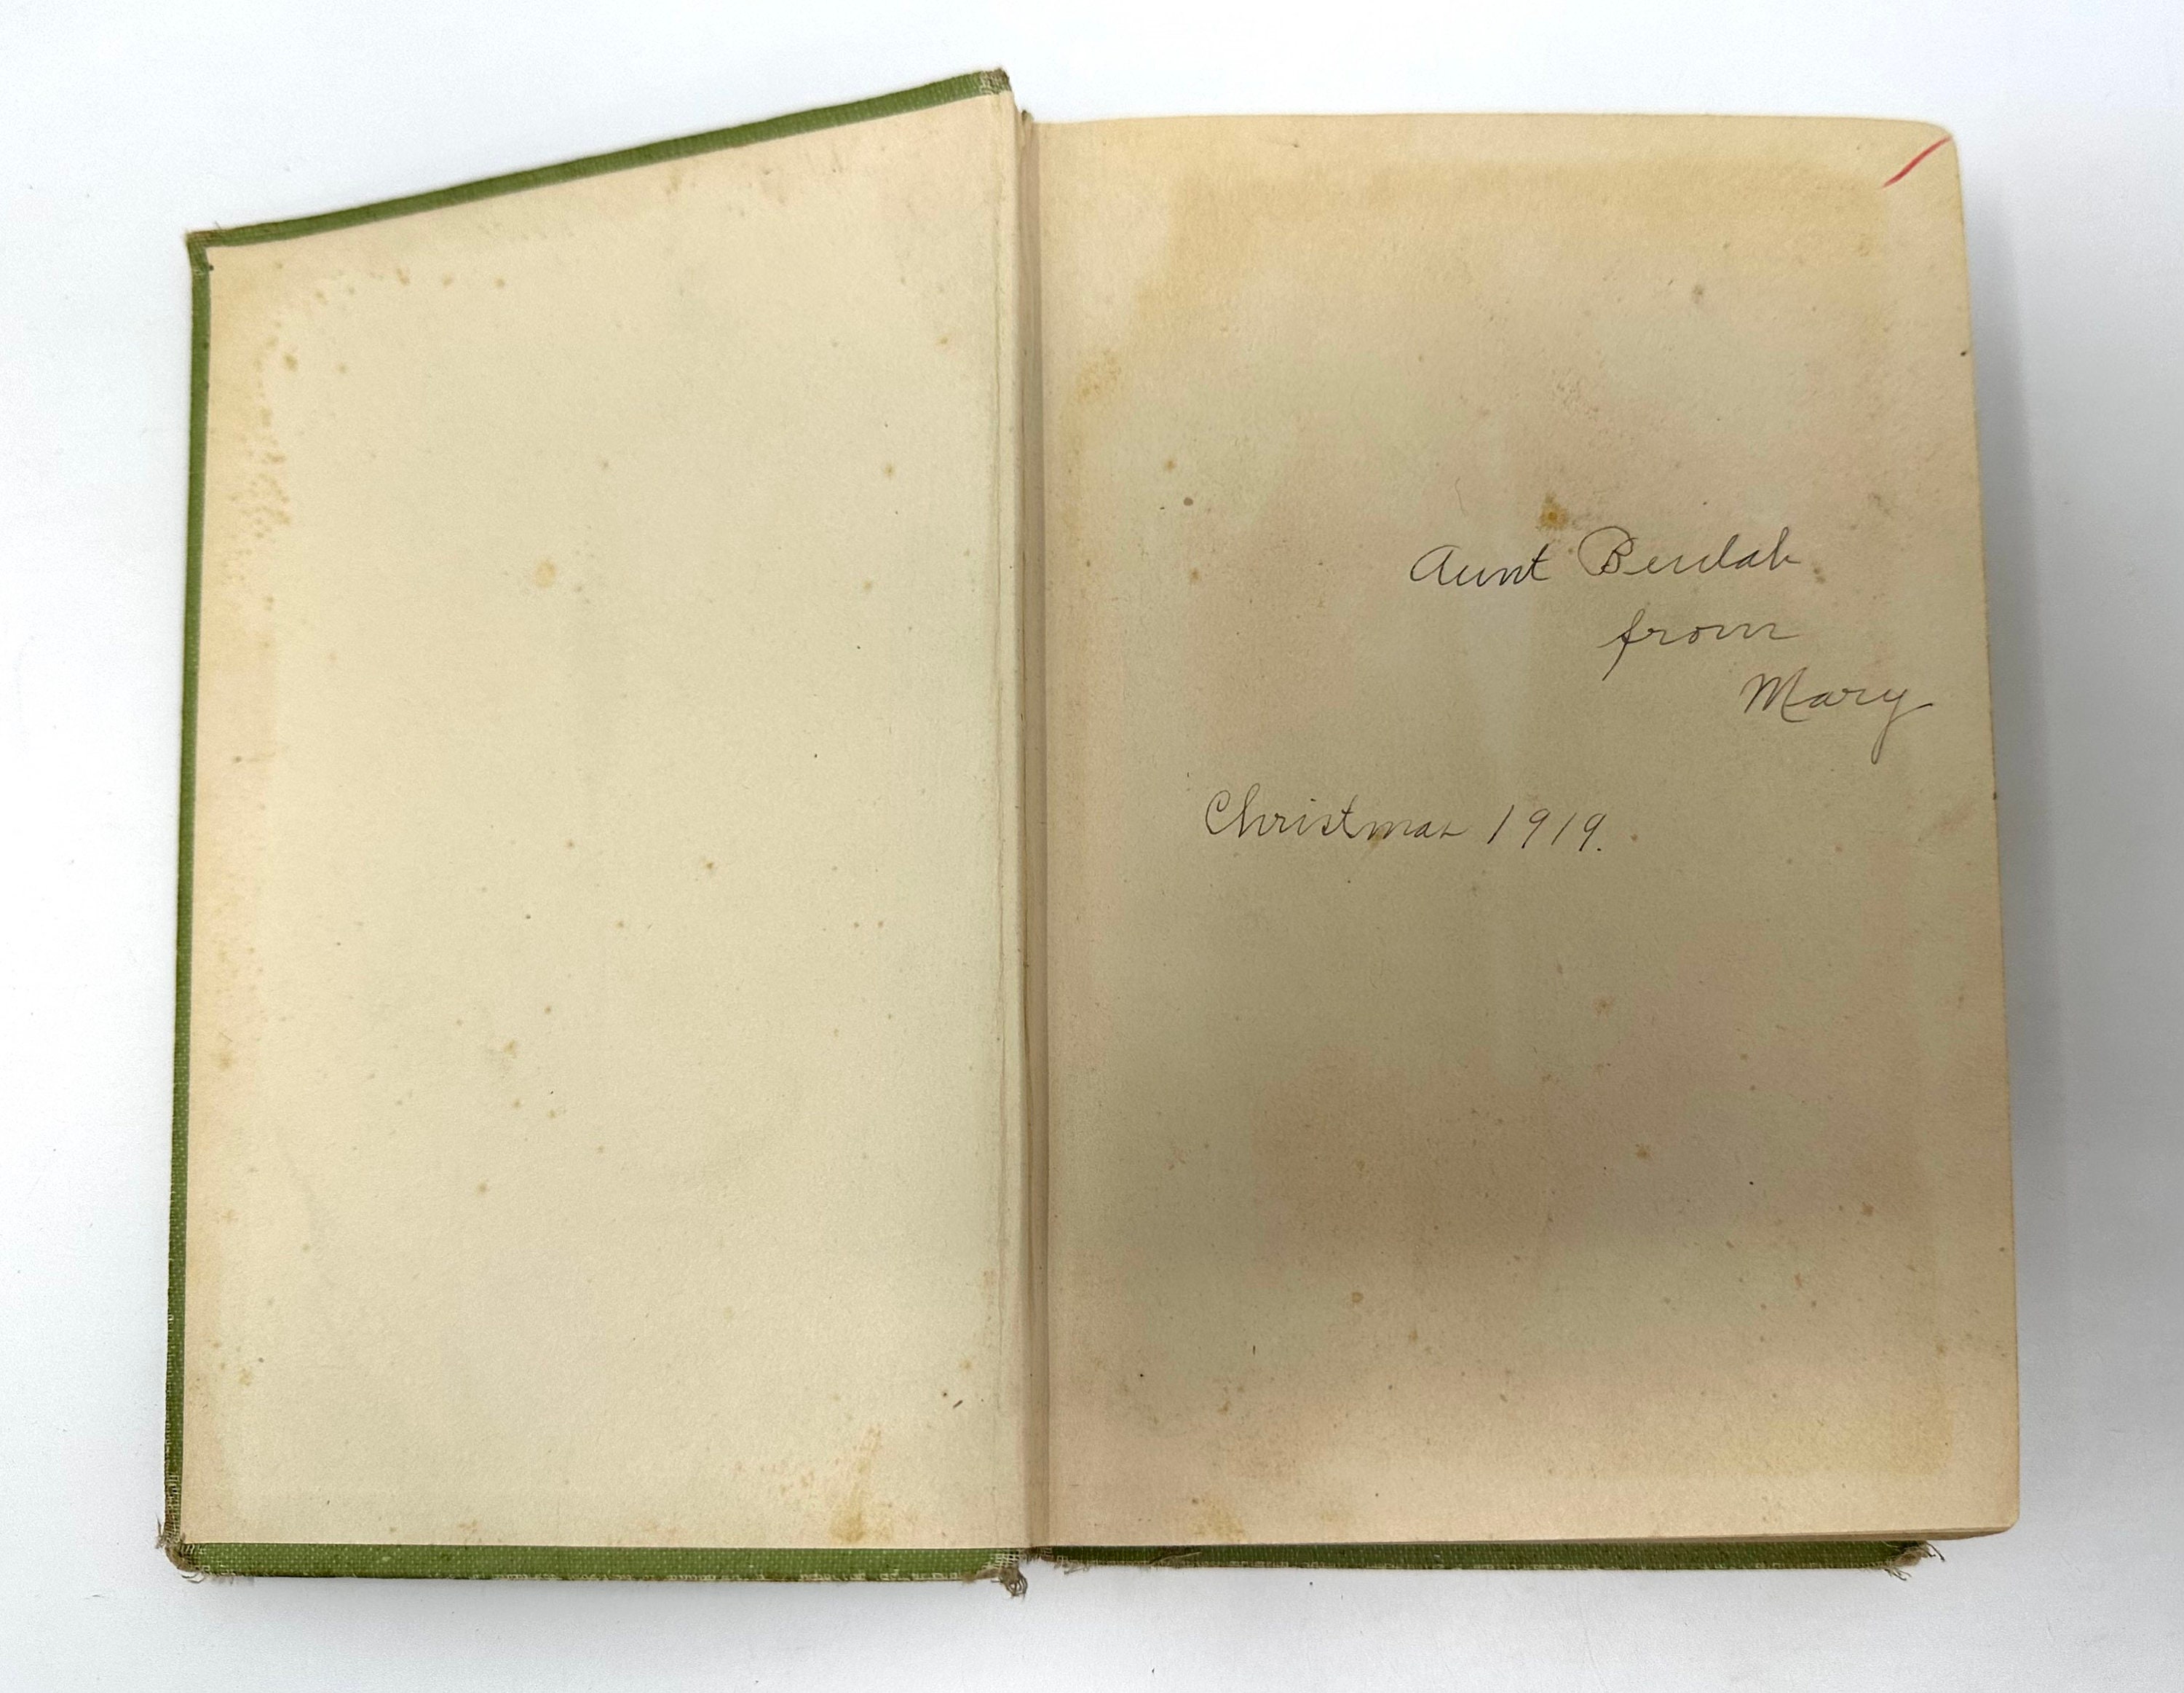 Aunt Beulah
from
Mary
Christmas 1919.